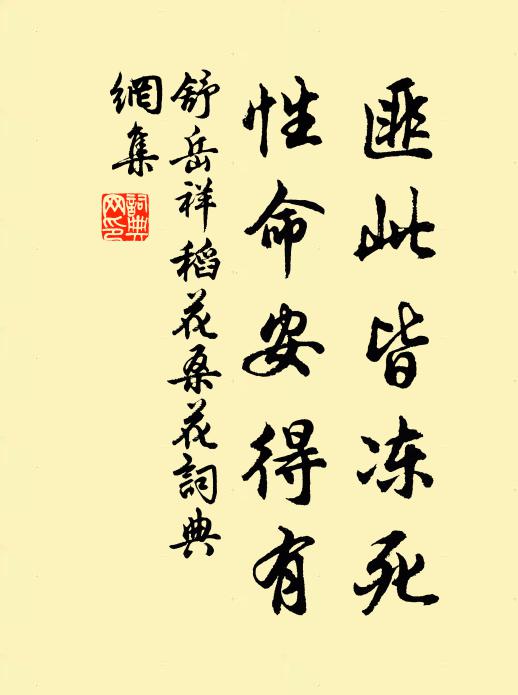 匪此皆冻死
性命安得有
舒岳祥稻花桑花詞典
網集
詞典
网印